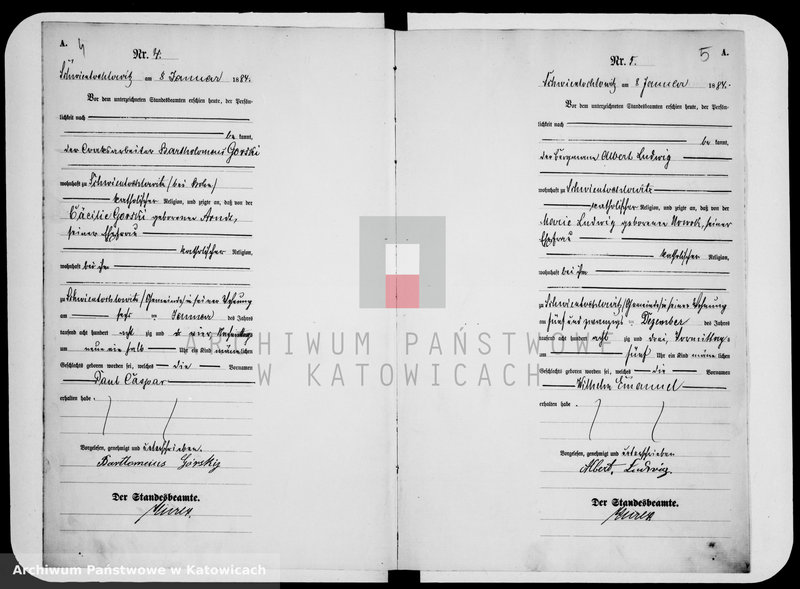 A. 4
Nr. 4.
Schwientochlowitz am 8 Januar 1884.
Vor dem unterzeichneten Standesbeamten erschien heute, der Persön-
lichkeit nach
be kannt,
der Coaksarbeiter Bartholomeus Gorski
wohnhaft zu Schwientochlowitz
katholischer Religion, und zeigte an, daß von der
Cäcilie Gorski geborenen Arndt,
seiner Ehefrau
katholischer Religion,
wohnhaft bei ihm
zu Schwientochlowitz/Gemeinde in seiner Wohnung
am Januar des Jahres
tausend acht hundert acht zig und vier Nachmittags
um neun ein halb Uhr ein Kind männlichen
Geschlechts geboren worden sei, welches die Vornamen
Paul Caspar
erhalten habe.
Vorgelesen, genehmigt und unterschrieben.
Bartlomeius Górskig
Der Standesbeamte.
5 A.
Nr. 5.
Schwientochlowitz am 8 Januar 1884.
Vor dem unterzeichneten Standesbeamten erschien heute, der Persön-
lichkeit nach
be kannt,
der Bergmann Albert Ludwig
wohnhaft zu Schwientochlowitz
katholischer Religion, und zeigte an, daß von der
Marie Ludwig geborenen Nowak, seiner
Ehefrau
katholischer Religion,
wohnhaft bei ihm
zu Schwientochlowitz/Gemeinde in seiner Wohnung
am fünf und zwanzigs ten Dezember des Jahres
tausend acht hundert acht zig und drei, Vormittags
um fünf Uhr ein Kind männlichen
Geschlechts geboren worden sei, welches die Vornamen
Wilhelm Emanuel
erhalten habe.
Vorgelesen, genehmigt und unterschrieben
Albert Ludwig.
Der Standesbeamte.
ARCHIWUM PAŃSTWOWE
W KATOWICACH
Archiwum Państwowe w Katowicach